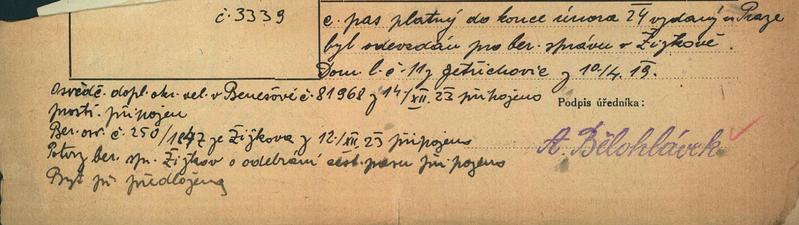 č. 3339
c. pas platný do konce února 24 vydaný v Praze
byl odevzdán pro ber. správu v Žižkově.
Dom. l. č. 117 Jetřichovic z 10./4. 19.
Osvědč. dopl. okr. vel. v Benešově č. 81968 z 14/XII. 23 připojeno
prosti. připojen
Podpis úředníka:
Ber. osv. č. 250/1847 ze Žižkova z 12./XII. 23 připojeno
A. Bělohlávek
Potvrz ber. sp. Žižkov o odebrání cest. pasu připojeno
Byt. př. předložena